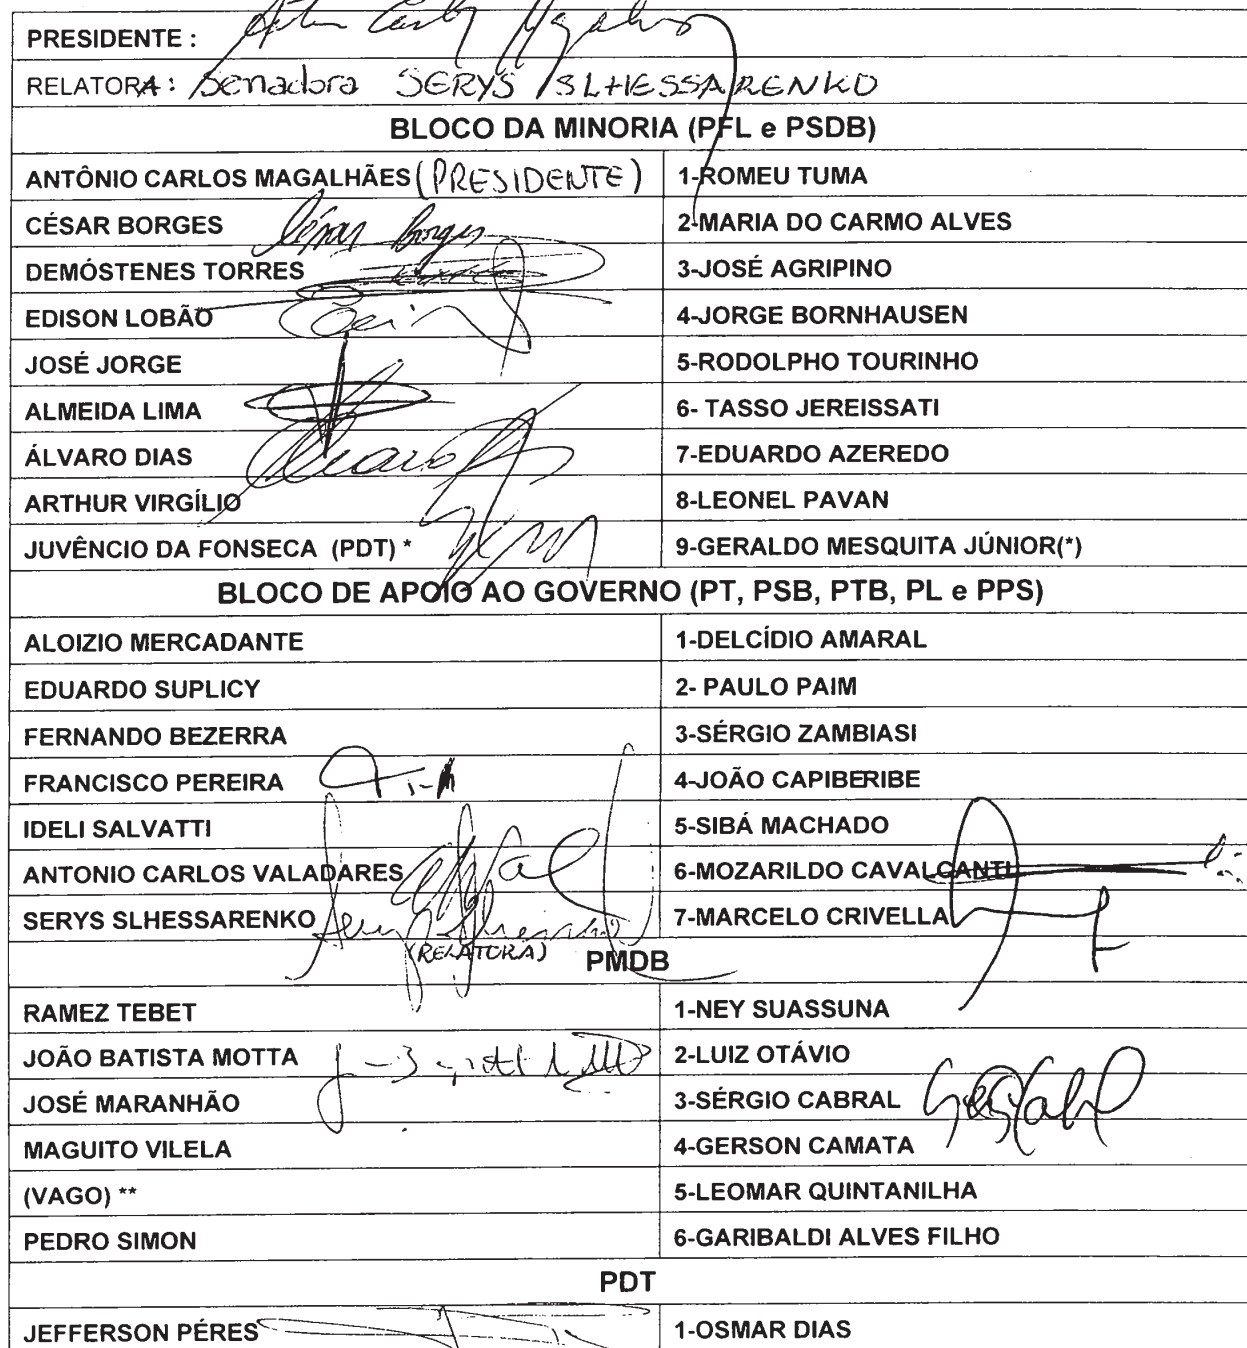 PRESIDENTE :
RELATORA : Senadora SERYS SLHESSARENKO
BLOCO DA MINORIA (PFL e PSDB)
ANTÔNIO CARLOS MAGALHÃES (PRESIDENTE) 1-ROMEU TUMA
CÉSAR BORGES César Borges 2-MARIA DO CARMO ALVES
DEMÓSTENES TORRES 3-JOSÉ AGRIPINO
EDISON LOBÃO 4-JORGE BORNHAUSEN
JOSÉ JORGE 5-RODOLPHO TOURINHO
ALMEIDA LIMA 6- TASSO JEREISSATI
ÁLVARO DIAS 7-EDUARDO AZEREDO
ARTHUR VIRGÍLIO 8-LEONEL PAVAN
JUVÊNCIO DA FONSECA (PDT) * 9-GERALDO MESQUITA JÚNIOR(*)
BLOCO DE APOIO AO GOVERNO (PT, PSB, PTB, PL e PPS)
ALOIZIO MERCADANTE 1-DELCÍDIO AMARAL
EDUARDO SUPLICY 2- PAULO PAIM
FERNANDO BEZERRA 3-SÉRGIO ZAMBIASI
FRANCISCO PEREIRA 4-JOÃO CAPIBERIBE
IDELI SALVATTI 5-SIBÁ MACHADO
ANTONIO CARLOS VALADARES 6-MOZARILDO CAVALCANTI
SERYS SLHESSARENKO 7-MARCELO CRIVELLA
(RELATORA)
PMDB
RAMEZ TEBET 1-NEY SUASSUNA
JOÃO BATISTA MOTTA 2-LUIZ OTÁVIO
JOSÉ MARANHÃO 3-SÉRGIO CABRAL
MAGUITO VILELA 4-GERSON CAMATA
(VAGO) ** 5-LEOMAR QUINTANILHA
PEDRO SIMON 6-GARIBALDI ALVES FILHO
PDT
JEFFERSON PÉRES 1-OSMAR DIAS